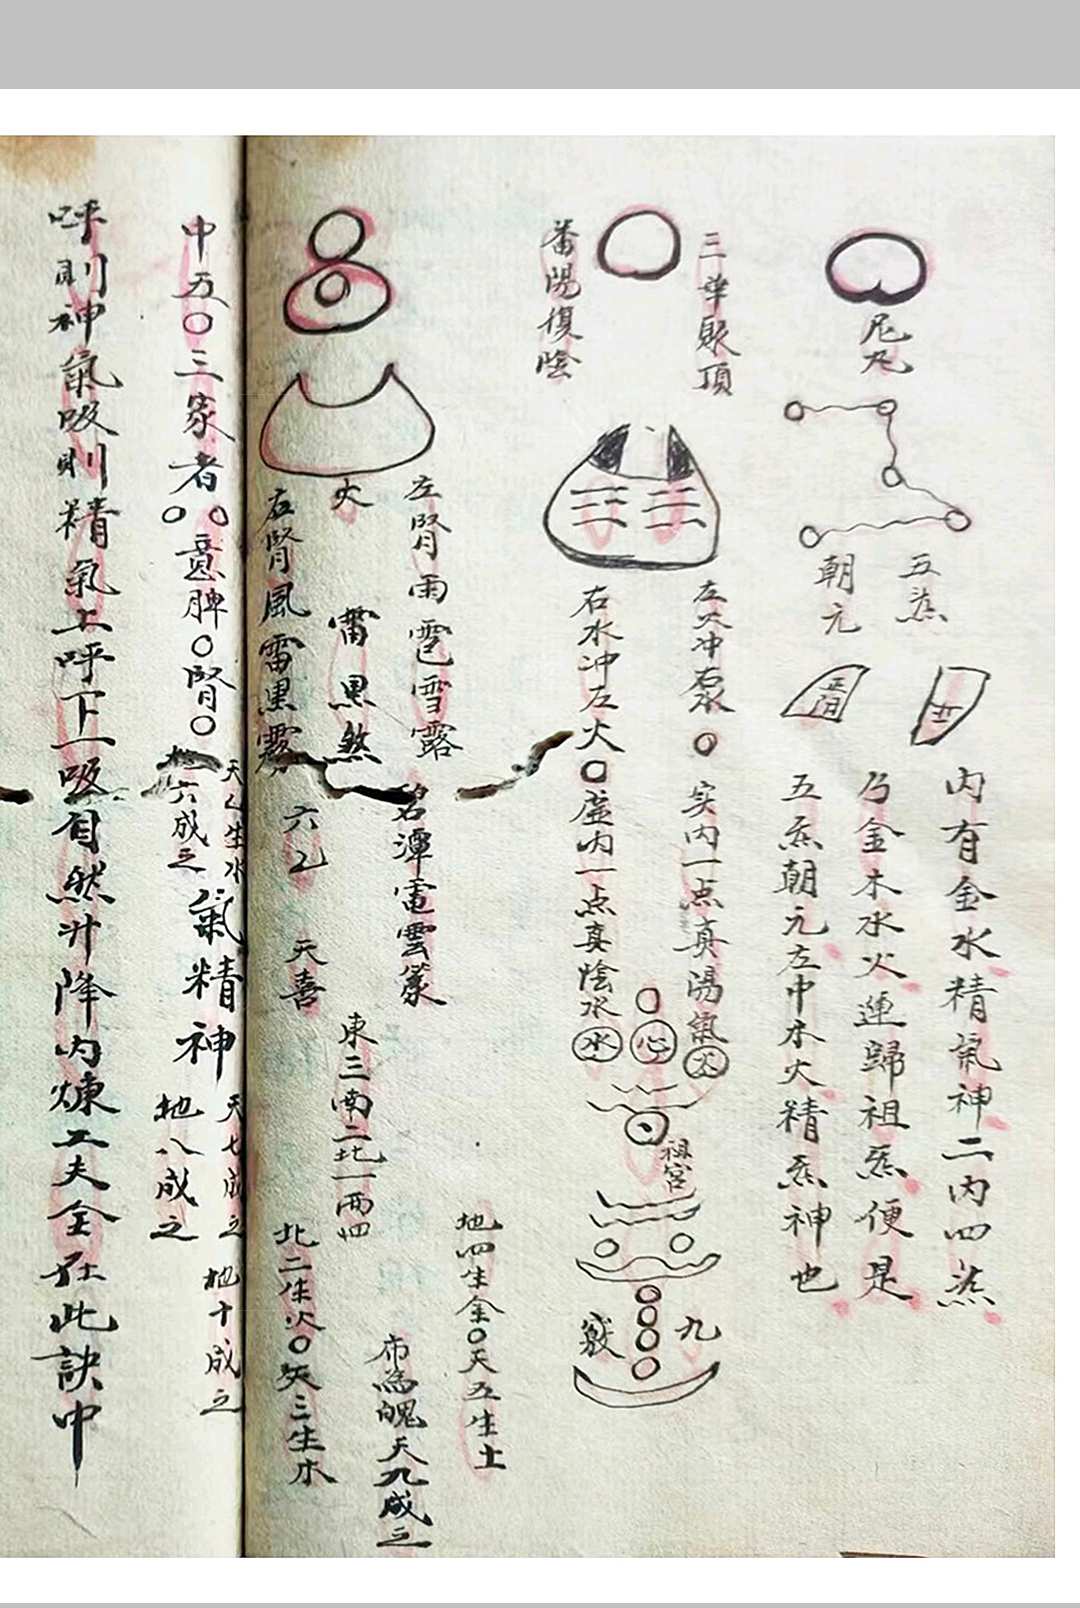 尼丸
五炁
朝元
内有金水精氣神二内四炁
乃金木水火運歸祖炁便是
五炁朝元左中水火精炁神也
三華聚頂
番陽復陰
左火冲右水〇实内一点真陽氣火
右水冲左火〇虛内一点真陰水水
心
祖宮
九
竅
左腎雨雹雪露
火
雷黑煞
右腎風雷黑霧
碧潭電雲篆
六乙
天喜
東三南二北一西四
地四生金〇天五生土
北二生火〇天三生木
布為魄天九成之
中五〇三家者〇〇意脾〇腎〇
天乙生水
地六成之
氣精神
天七成之
地八成之
地十成之
呼則神氣吸則精氣上呼下吸自然升降内煉工夫全在此訣中